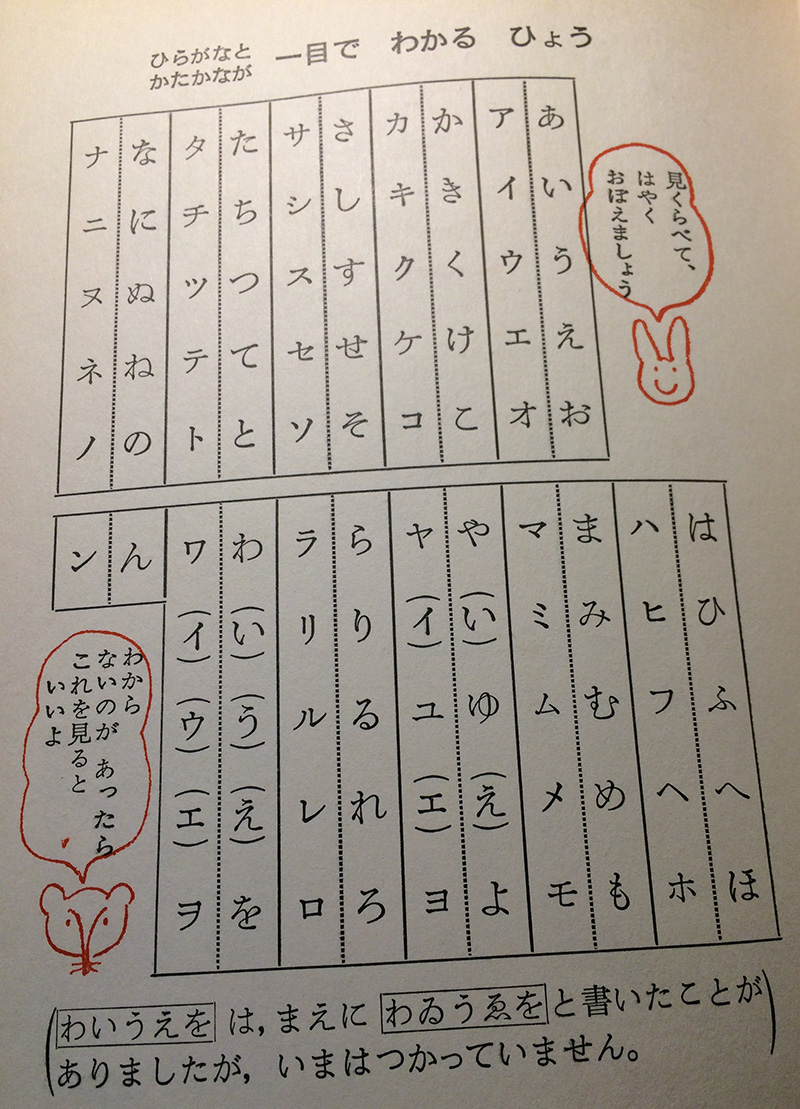 ひらがなと
かたかなが
一目で わかる ひょう
見くらべて、
はやく
おぼえましょう
あいうえお
アイウエオ
かきくけこ
カキクケコ
さしすせそ
サシスセソ
たちつてと
タチツテト
なにぬねの
ナニヌネノ
はひふへほ
ハヒフヘホ
まみむめも
マミムメモ
や(い)ゆ(え)よ
ヤ(イ)ユ(エ)ヨ
らりるれろ
ラリルレロ
わ(い)(う)(え)を
ワ(イ)(ウ)(エ)ヲ
ん
ン
わから
ないのが あったら
これを見ると
いいよ
(わいうえを は, まえに わゐうゑを と書いたことが
ありましたが, いまはつかっていません。)